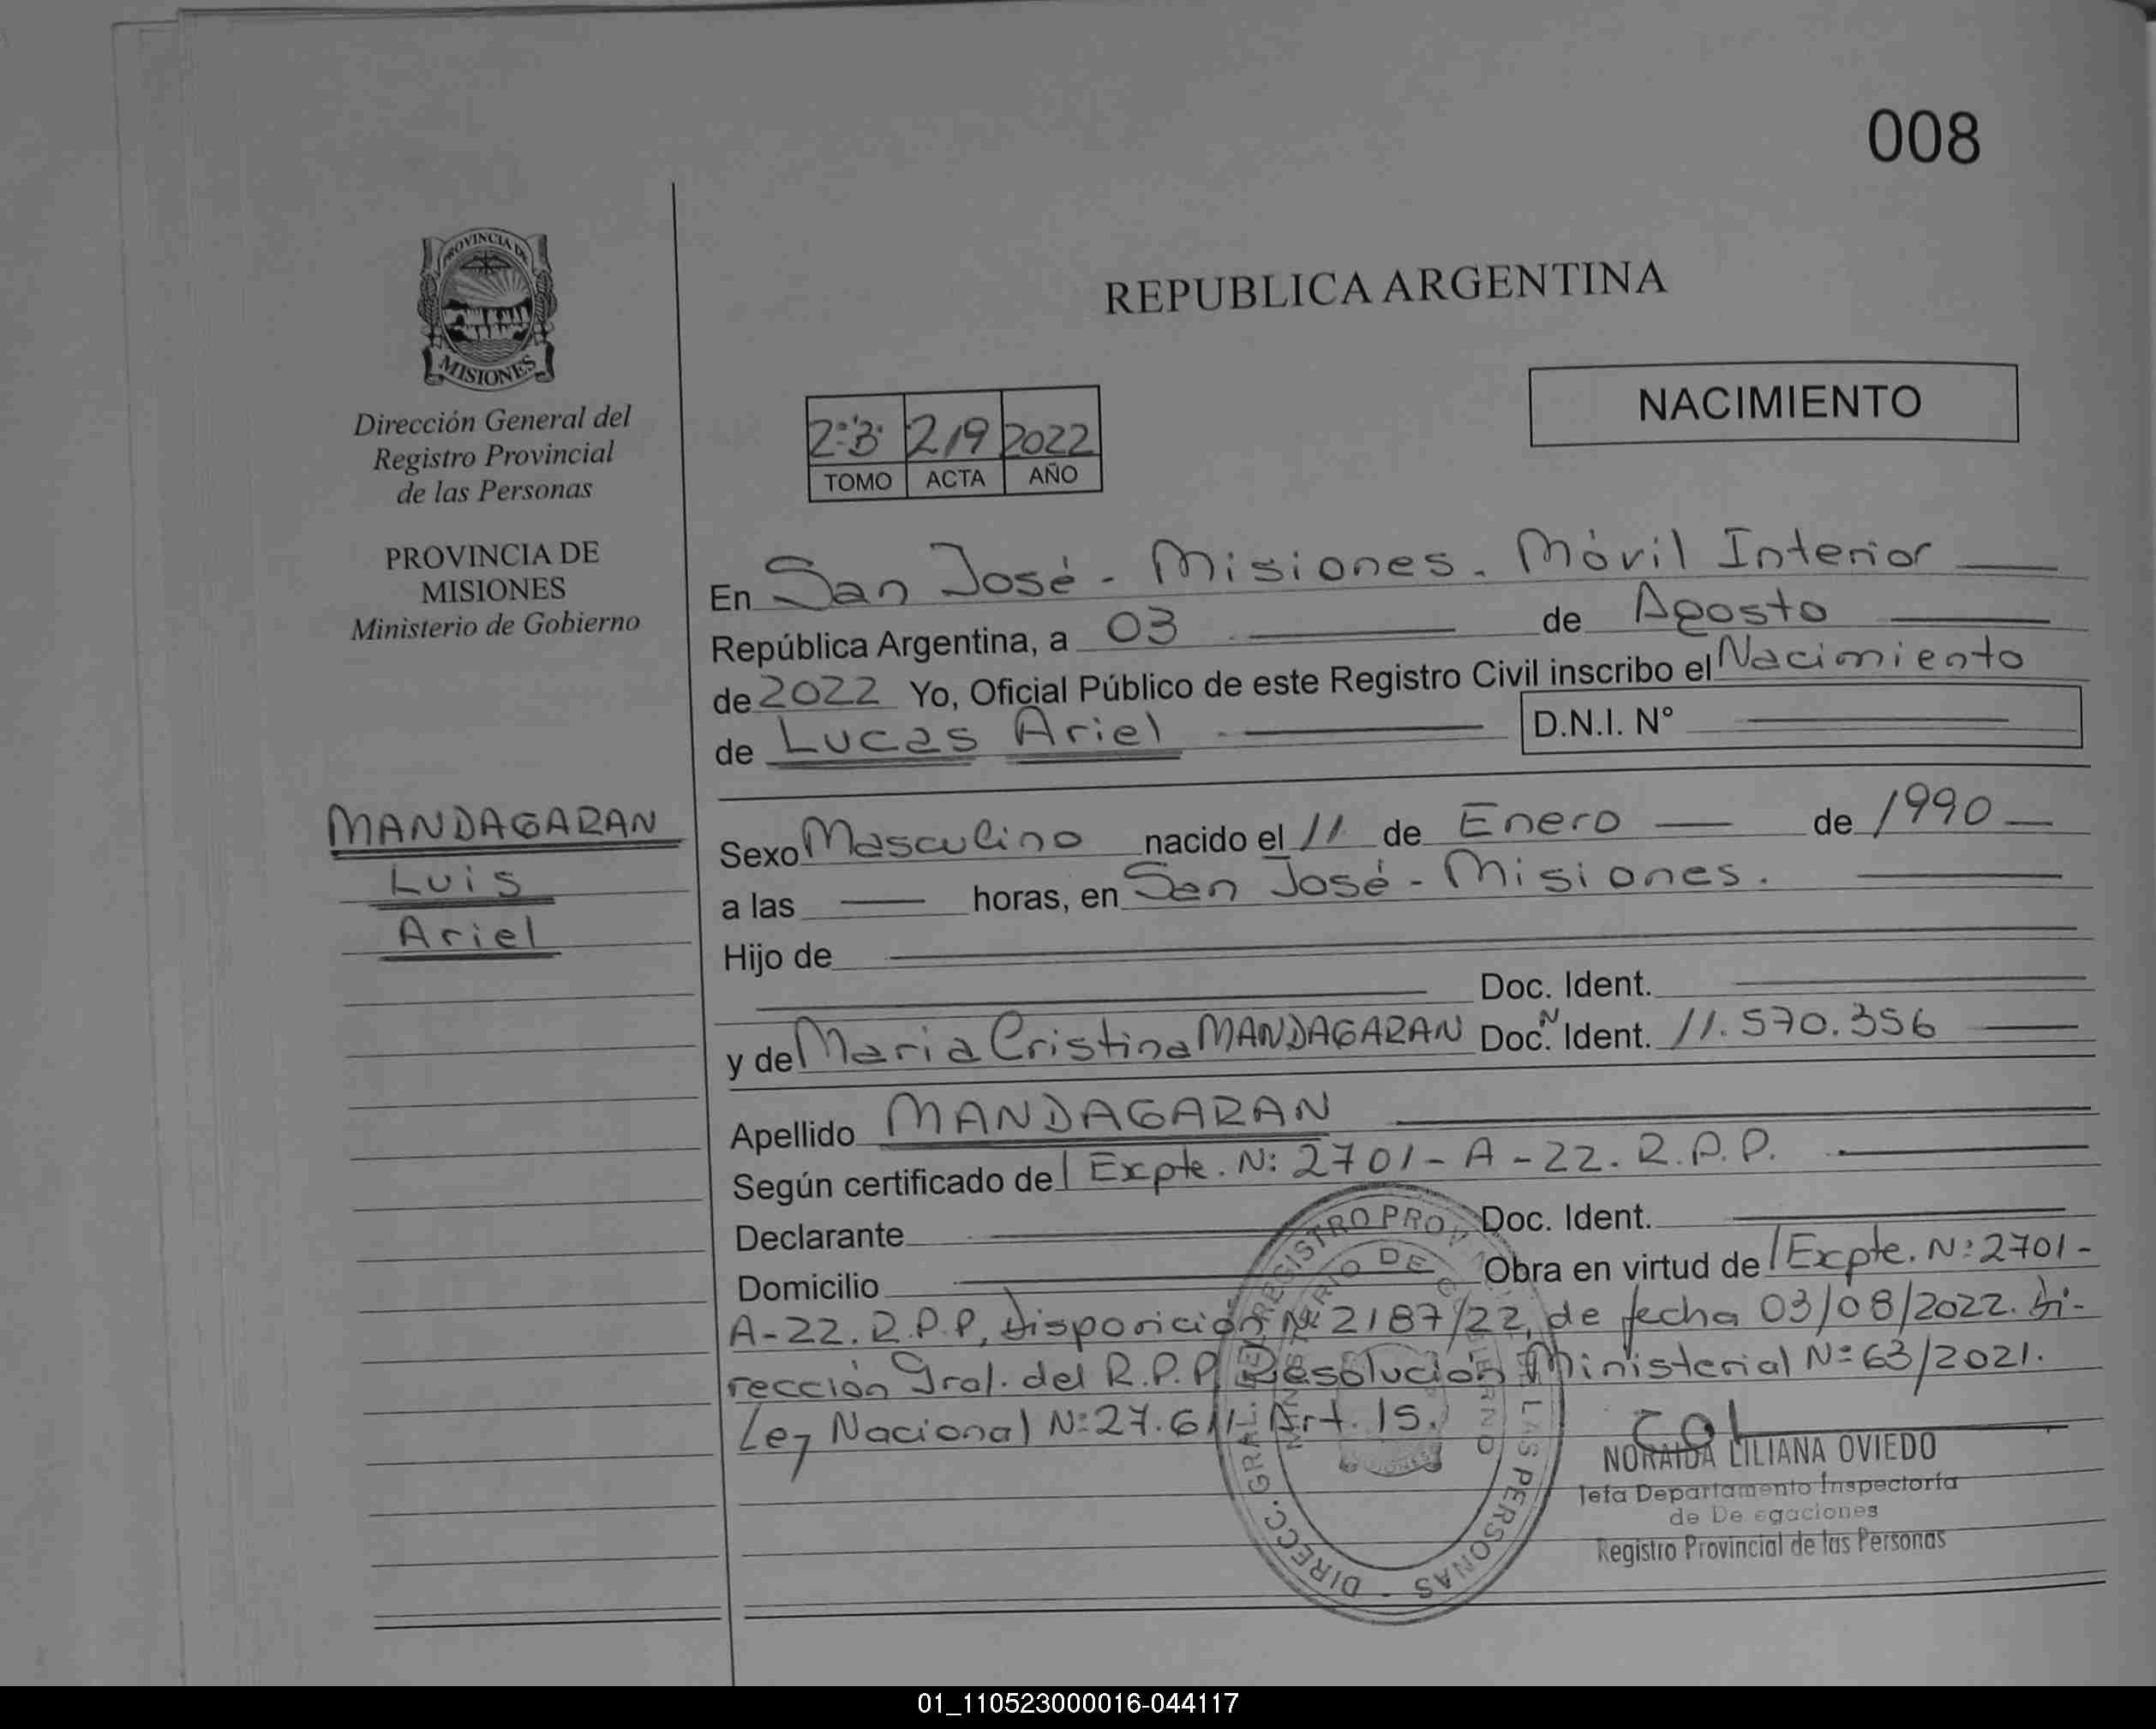 008
PROVINCIA DE
MISIONES
Dirección General del
Registro Provincial
de las Personas
PROVINCIA DE
MISIONES
Ministerio de Gobierno
MANDAGARAN
Luis
Ariel
REPUBLICA ARGENTINA
NACIMIENTO
219 2022
TOMO ACTA AÑO
En San José - Misiones. Móvil Interior
República Argentina, a 03 de Agosto
de 2022 Yo, Oficial Público de este Registro Civil inscribo el Nacimiento
de Lucas Ariel D.N.I. Nº
Sexo Masculino nacido el 11 de Enero de 1990
a las horas, en San José - Misiones.
Hijo de
Doc. Ident.
y de Maria Cristina MANDAGARAN Doc. N Ident. 11.570.356
Apellido MANDAGARAN
Según certificado del Expte. Nº 2701-A-22. R.P.P.
Declarante Doc. Ident.
Domicilio Obra en virtud del Expte. Nº 2701-
A-22. R.P.P, Disposición Nº 2187/22, de fecha 03/08/2022. Di-
rección Gral. del R.P.P, Resolución Ministerial Nº 63/2021.
Ley Nacional Nº 27.611- Art. 15.
DIRECC. GRAL. DEL REGISTRO PROV. DE LAS PERSONAS
MINISTERIO DE GOBIERNO
NORAIDA LILIANA OVIEDO
Jefa Departamento Inspectoría
de Delegaciones
Registro Provincial de las Personas
01_110523000016-044117